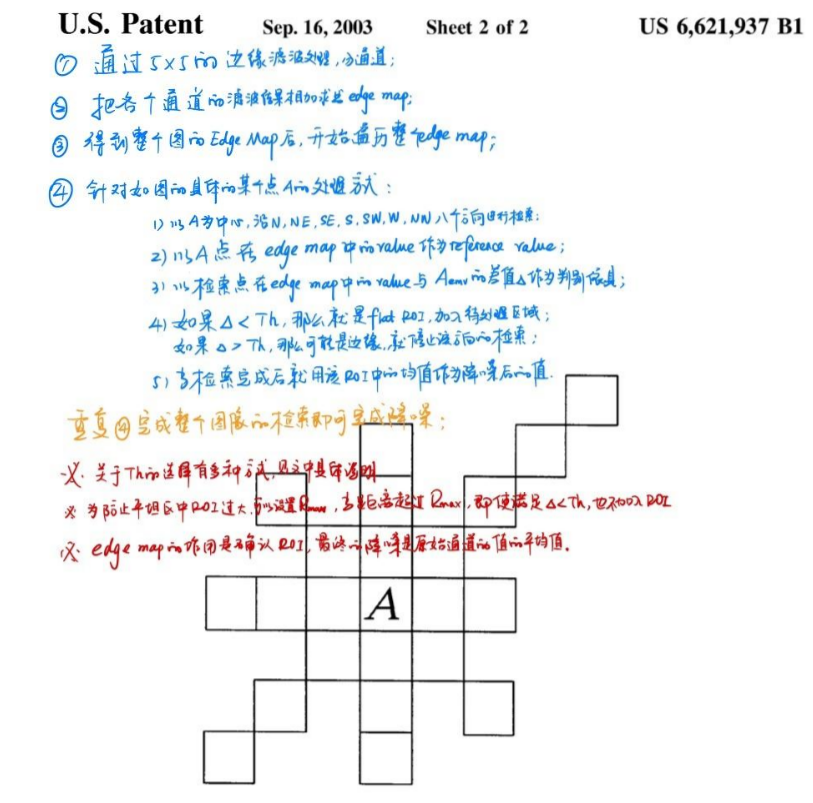 U.S. Patent Sep. 16, 2003 Sheet 2 of 2 US 6,621,937 B1
① 通过5×5的边缘滤波处理,分通道;
② 把各个通道的滤波结果相加求出edge map;
③ 得到整个图的Edge Map后,开始遍历整个edge map;
④ 针对如图的具体的某个点A的处理方式:
1) 以A为中心,沿N,NE,SE,S,SW,W,NW八个方向进行检索;
2) 以A点在edge map中的value作为reference value;
3) 以检索点在edge map中的value与A的差值△作为判别依据;
4) 如果△<Th,那么就是flat ROI,加入待处理区域;
如果△>Th,那么可能是边缘,就停止该方向的检索;
5) 当检索完成后就用该ROI中的均值作为降噪后的值.
重复④完成整个图像的检索即可完成降噪;
※. 关于Th的选择有多种方式,见文中具体说明
※ 为防止平坦区中ROI过大,可以设置Rmax,当距离超过Rmax,即使满足△<Th,也不加入ROI
※. edge map的作用是确认ROI,最终的降噪是原始通道的值的平均值.
A